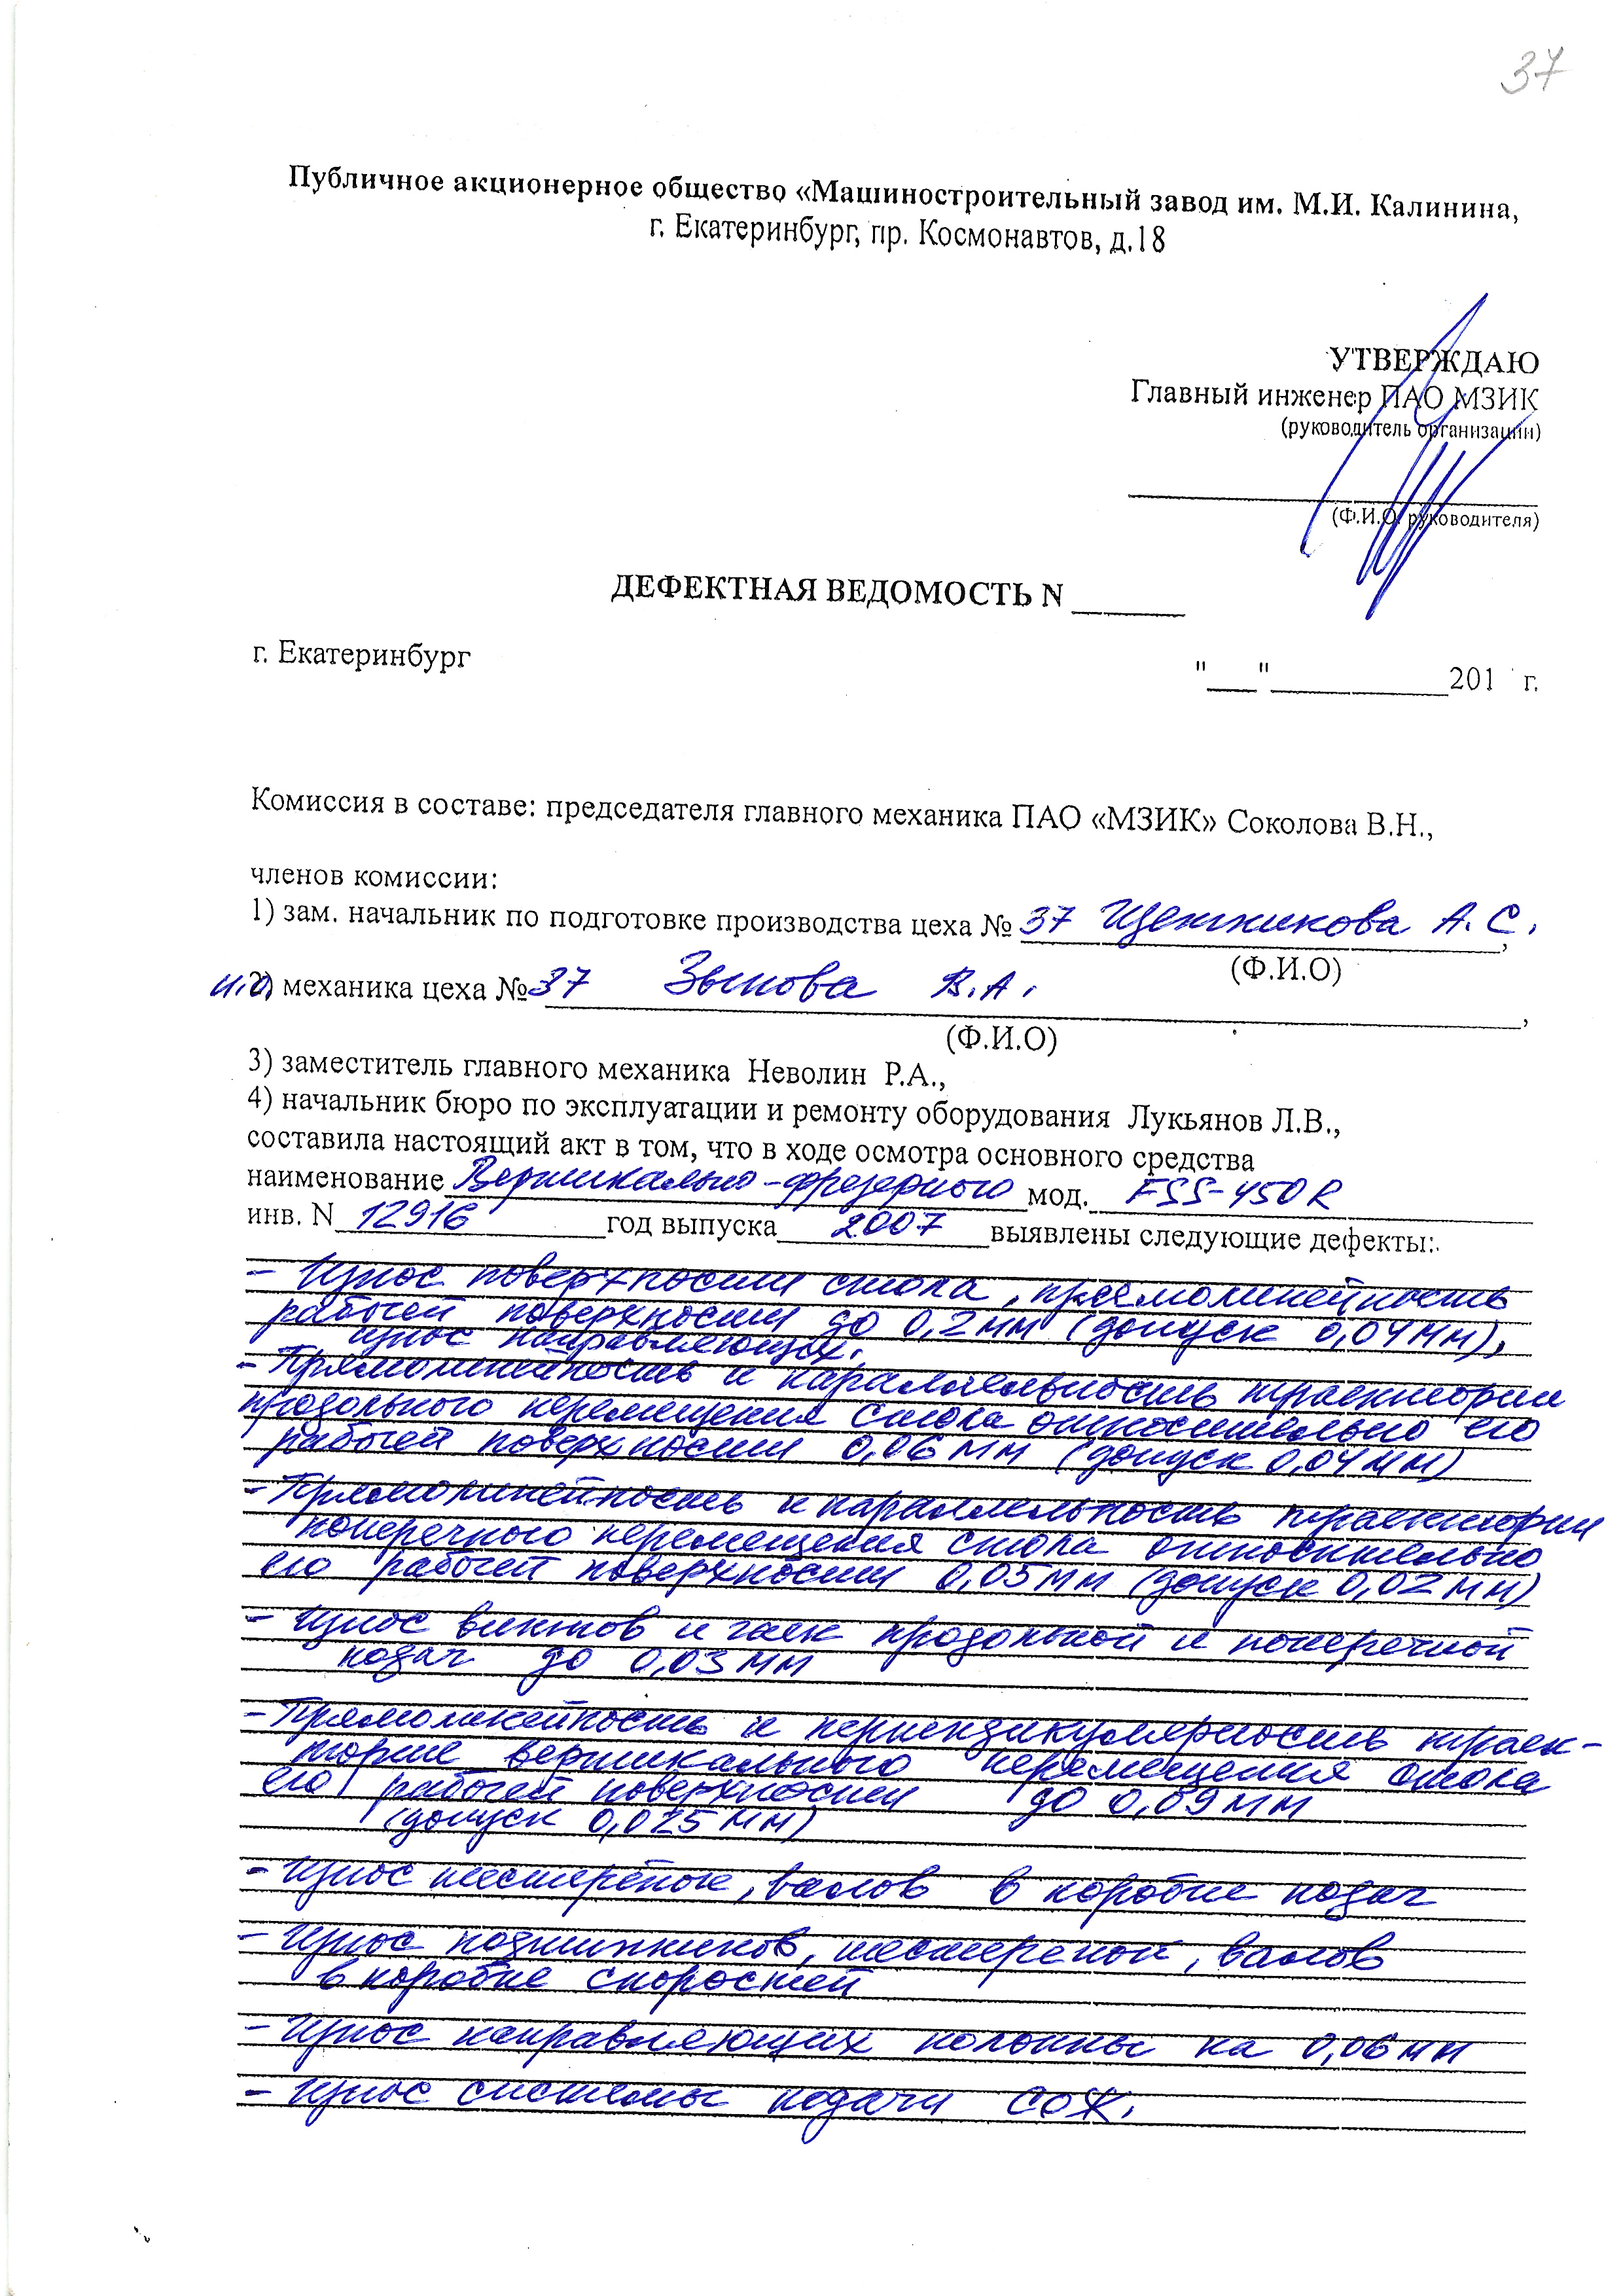 37
Публичное акционерное общество «Машиностроительный завод им. М.И. Калинина,
г. Екатеринбург, пр. Космонавтов, д.18
УТВЕРЖДАЮ
Главный инженер ПАО МЗИК
(руководитель организации)
(Ф.И.О. руководителя)
ДЕФЕКТНАЯ ВЕДОМОСТЬ N ______
г. Екатеринбург "___"___________201 г.
Комиссия в составе: председателя главного механика ПАО «МЗИК» Соколова В.Н.,
членов комиссии:
1) зам. начальник по подготовке производства цеха № 37 А.С.,
(Ф.И.О)
и.о. 2) механика цеха № 37 Зыкова В.А.,
(Ф.И.О)
3) заместитель главного механика Неволин Р.А.,
4) начальник бюро по эксплуатации и ремонту оборудования Лукьянов Л.В.,
составила настоящий акт в том, что в ходе осмотра основного средства
наименование Вертикально-фрезерного мод. FSS-450R
инв. N 12916 год выпуска 2007 выявлены следующие дефекты:
- Износ поверхности стола, прямолинейность
рабочей поверхности до 0,2 мм (допуск 0,04 мм),
износ направляющих.
- Прямолинейность и параллельность траектории
продольного перемещения стола относительно его
рабочей поверхности 0,06 мм (допуск 0,04 мм)
- Прямолинейность и параллельность траектории
поперечного перемещения стола относительно
его рабочей поверхности 0,05 мм (допуск 0,02 мм)
- Износ винтов и гаек продольной и поперечной
подач до 0,03 мм
- Прямолинейность и перпендикулярность траек-
тории вертикального перемещения стола
его рабочей поверхности до 0,09 мм
(допуск 0,025 мм)
- Износ шестерёнок, валов в коробке подач
- Износ подшипников, шестереной, валов
в коробке скоростей
- Износ направляющих колонны на 0,06 мм
- Износ системы подачи СОЖ.